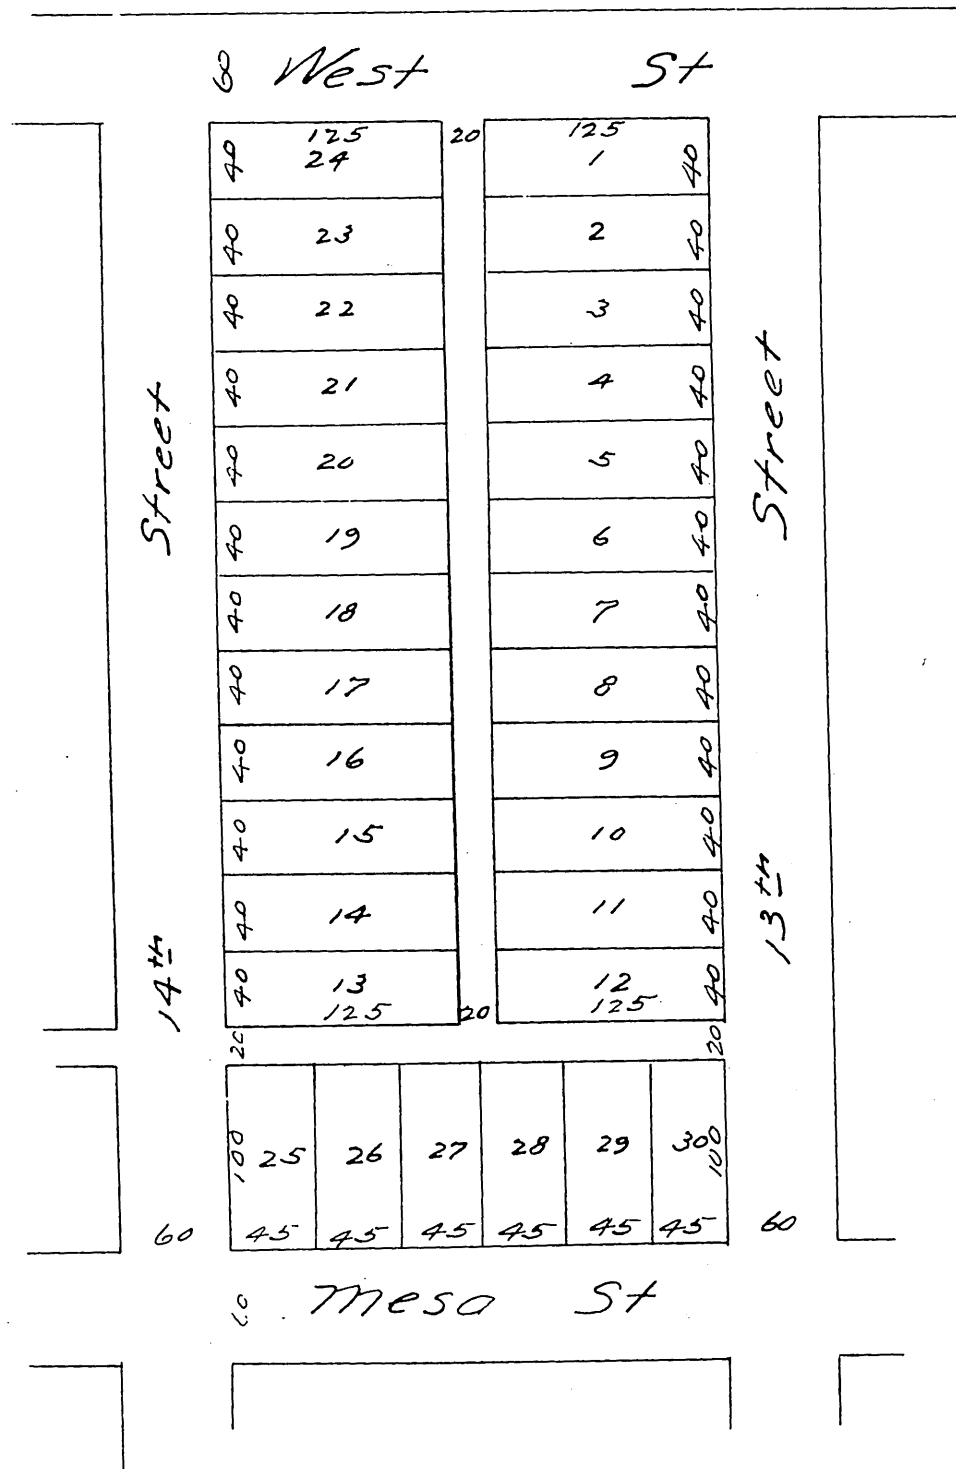 60 West St
125 20 125
40 24 1 40
40 23 2 40
40 22 3 40
40 21 4 40
40 20 5 40
40 19 6 40
40 18 7 40
40 17 8 40
40 16 9 40
40 15 10 40
40 14 11 40
40 13 12 40
125 20 125
14th Street
13th Street
20 20
100 25 26 27 28 29 30 100
60 45 45 45 45 45 45 60
60 Mesa St